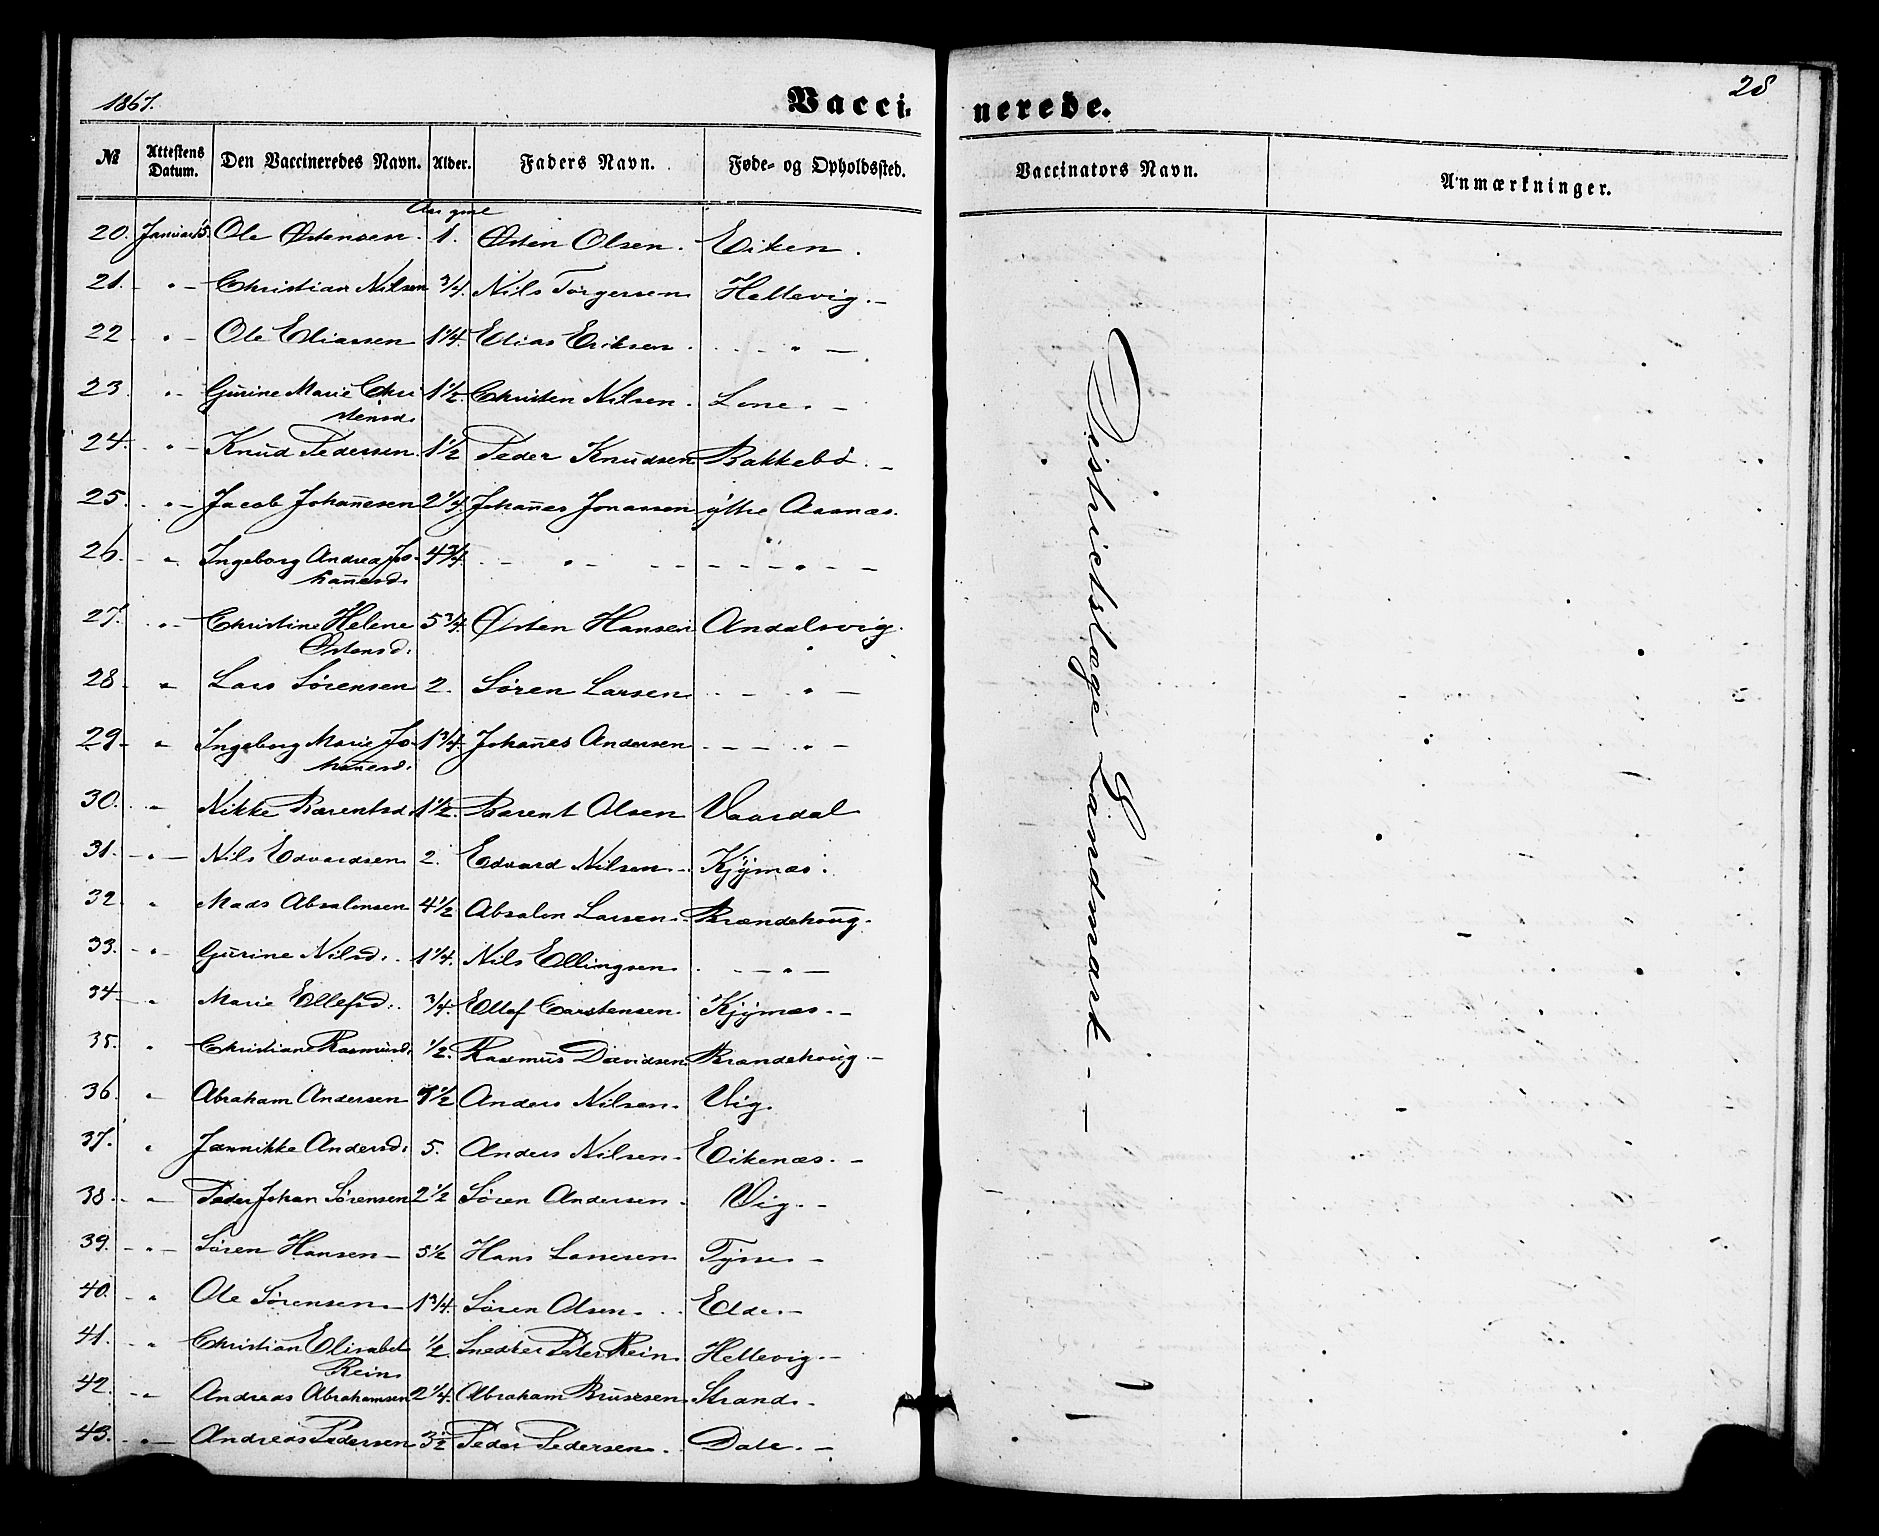 1867. Vaccinerede. 28
№ Attestens Datum. Den Vaccineredes Navn. Alder. Faders Navn. Føde- og Opholdssted. Vaccinators Navn. Anmærkninger.
20. Januar 5. Ole Østensen. 1. Østen Olsen. Eiken.
21. - " - Christian Nilsen 3/4. Nils Torgersen Hellevig. -
22 " - Ole Eliassen 1 1/4. Elias Eriksen. - " -
23. " - Gurine Marie Chri
stensd. 1 1/2. Christen Nilsen. Lone. -
24. - " - Knud Pedersen. 1 1/2 Peder Knudsen Bakkebø. -
25. " - Jacob Johan̄esen 2 1/4. Johan̄es Jonassen ÿttre Aasnæs.
26. - " Ingeborg Andrea Jo-
han̄esd. 4 3/4. - " - - - - " - -
27. " - Christine Helene
Østensd. 5 3/4. Østen Hansen Andalsvig.
28 " Lars Sørensen 2. Søren Larsen - " -
29. " Ingeborg Marie Jo-
han̄esd. 1 3/4. Johan̄es Andersen - - - " -
30. " Nikke Barentsd. 1 1/2. Barent Olsen Vaardal
31. - " - Nils Edvardsen 2. Edvard Nilsen. - Kjÿmæs.
32. " Mads Absalonsen 4 1/2 Absalon Larsen. Brændehoug.
33. - " - Gurine Nilsd. 1 1/4. Nils Ellingsen. - - " -
34 " Marie Ellefsd. 3/4. Ellef Carstensen. Kjÿmæs. -
35. " Christiane Rasmusd. 1/2. Rasmus Davidsen Brandehoug. -
36. " Abraham Andersen 1/2 Anders Nilsen. Vig.
37. " Jannikke Andersd. 5. Anders Nilsen. Eikenæs. -
38. " Peder Johan Sørensen 2 1/2 Søren Andersen. Vig. -
39. - " - Søren Hansen - 5 1/2 Hans Lassesen Tÿsse. -
40. " Ole Sørensen. - 1 3/4. Søren Olsen. Elde. -
41. " Christian Elisabet
Rein. 1/2. Snedker Peter Rein. Hellevig. -
42. - " Andreas Abrahamsen 2 1/4. Abraham Brusesen. Strand.
43. - " - Andreas Pedersen 3 1/2 Peder Pedersen. Dale. -
Districtslæge Landmark - -